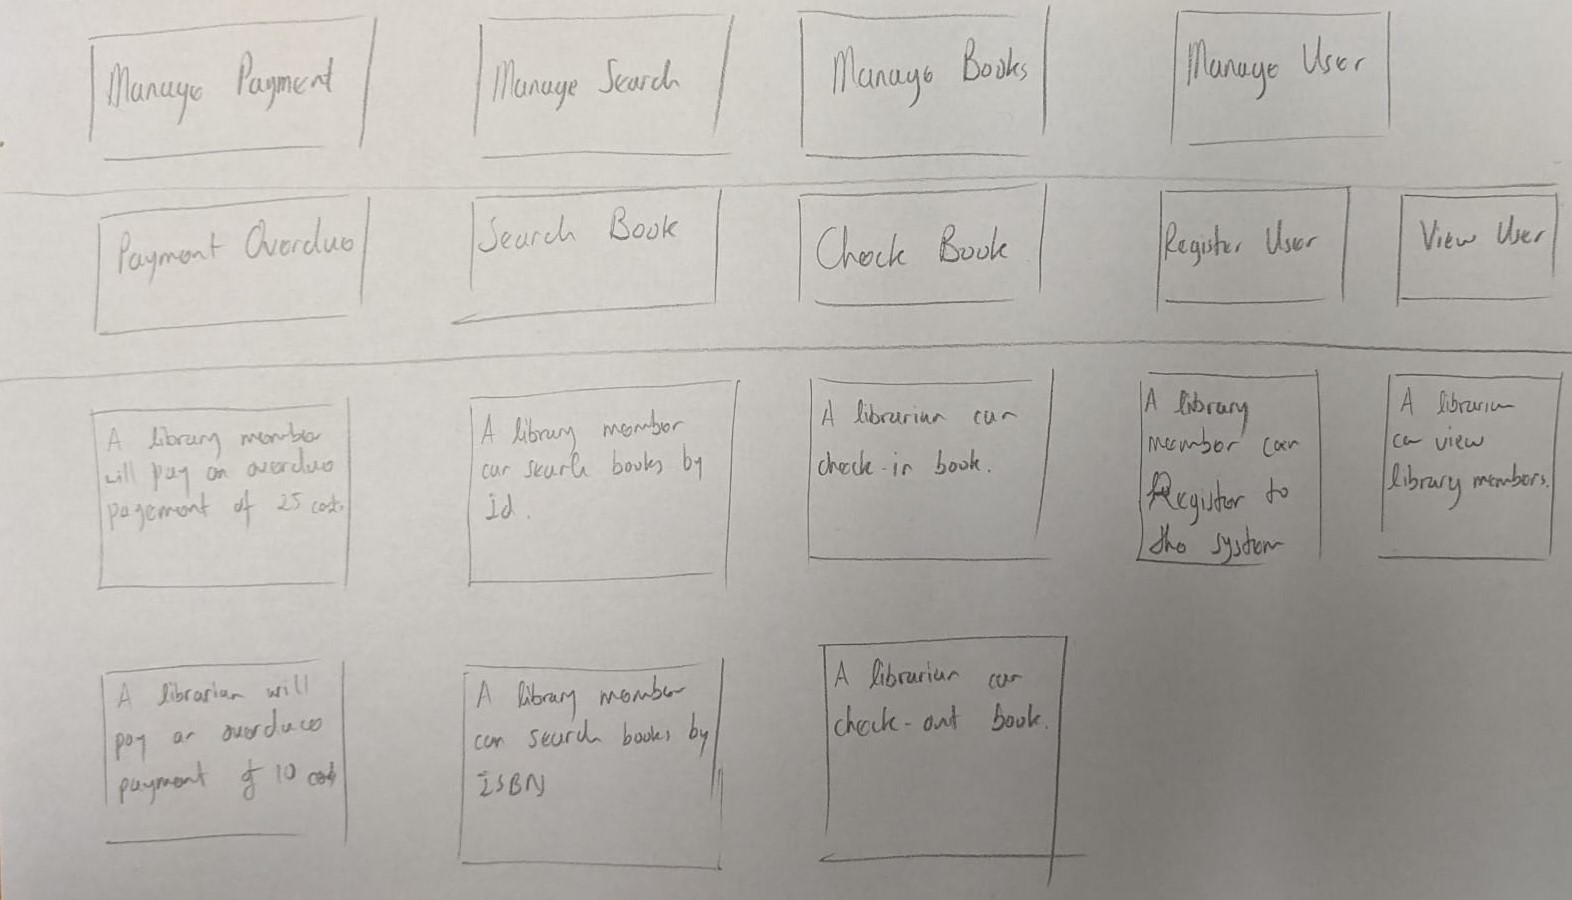 Manage Payment
Manage Search
Manage Books
Manage User
Payment Overdue
Search Book
Check Book
Register User
View User
A library member
will pay an overdue
payement of 25 cost.
A library member
can search books by
Id.
A librarian can
check-in book.
A library
member can
Register to
the system
A librarian
can view
library members.
A librarian will
pay an overduee
payment of 10 cost
A library member
can search books by
ISBN
A librarian can
check-out book.